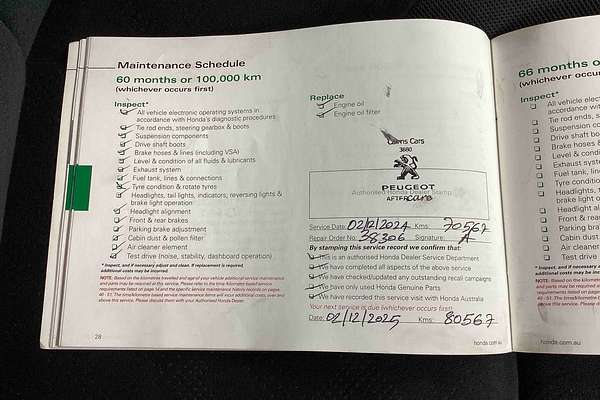 Maintenance Schedule
60 months or 100,000 km
(whichever occurs first)
Inspect*
All vehicle electronic operating systems in
accordance with Honda's diagnostic procedures
Tie rod ends, steering gearbox & boots
Suspension components
Drive shaft boots
Brake hoses & lines (including VSA)
Level & condition of all fluids & lubricants
Exhaust system
Fuel tank, lines & connections
Tyre condition & rotate tyres
Headlights, tail lights, indicators, reversing lights &
brake light operation
Headlight alignment
Front & rear brakes
Parking brake adjustment
Cabin dust & pollen filter
Air cleaner element
Test drive (noise, stability, dashboard operation)
* Inspect, and if necessary adjust and clean. If replacement is required,
additional costs may be incurred.
NOTE: Based on the kilometre travelled and age of your vehicle additional service maintenance
and parts may be required at this service. Please refer to the time/kilometre based service
requirements listed on page 14 and the specific service maintenance history records on pages
40 - 51. The time/kilometre based service maintenance items will incur additional costs, over and
above this service. Please discuss them with your Authorised Honda Dealer.
28
Replace
Engine oil
Engine oil filter
Cars
3880
PEUGEOT
Authorised Honda Dealer Stamp
AFTERcare
Service Date: 02/12/2024 Kms: 70567
Repair Order No. 38306 Signature:
By stamping this service record we confirm that:
This is an authorised Honda Dealer Service Department
We have completed all aspects of the above service
We have checked/updated any outstanding recall campaigns
We have only used Honda Genuine Parts
We have recorded this service visit with Honda Australia
Your next service is due (whichever occurs first)
Date: 02/12/2025 Kms: 80567
honda.com.au
66 months o
(whichever occur
Inspect*
All vehicle elect
accordance with
Tie rod ends, s
Suspension co
Drive shaft boots
Brake hoses &
Level & conditi
Exhaust system
Fuel tank, lines
Tyre condition
Headlights, t
brake light op
Headlight al
Front & rear b
Parking brake
Cabin dust &
Air cleaner e
Test drive (
honda.com.au